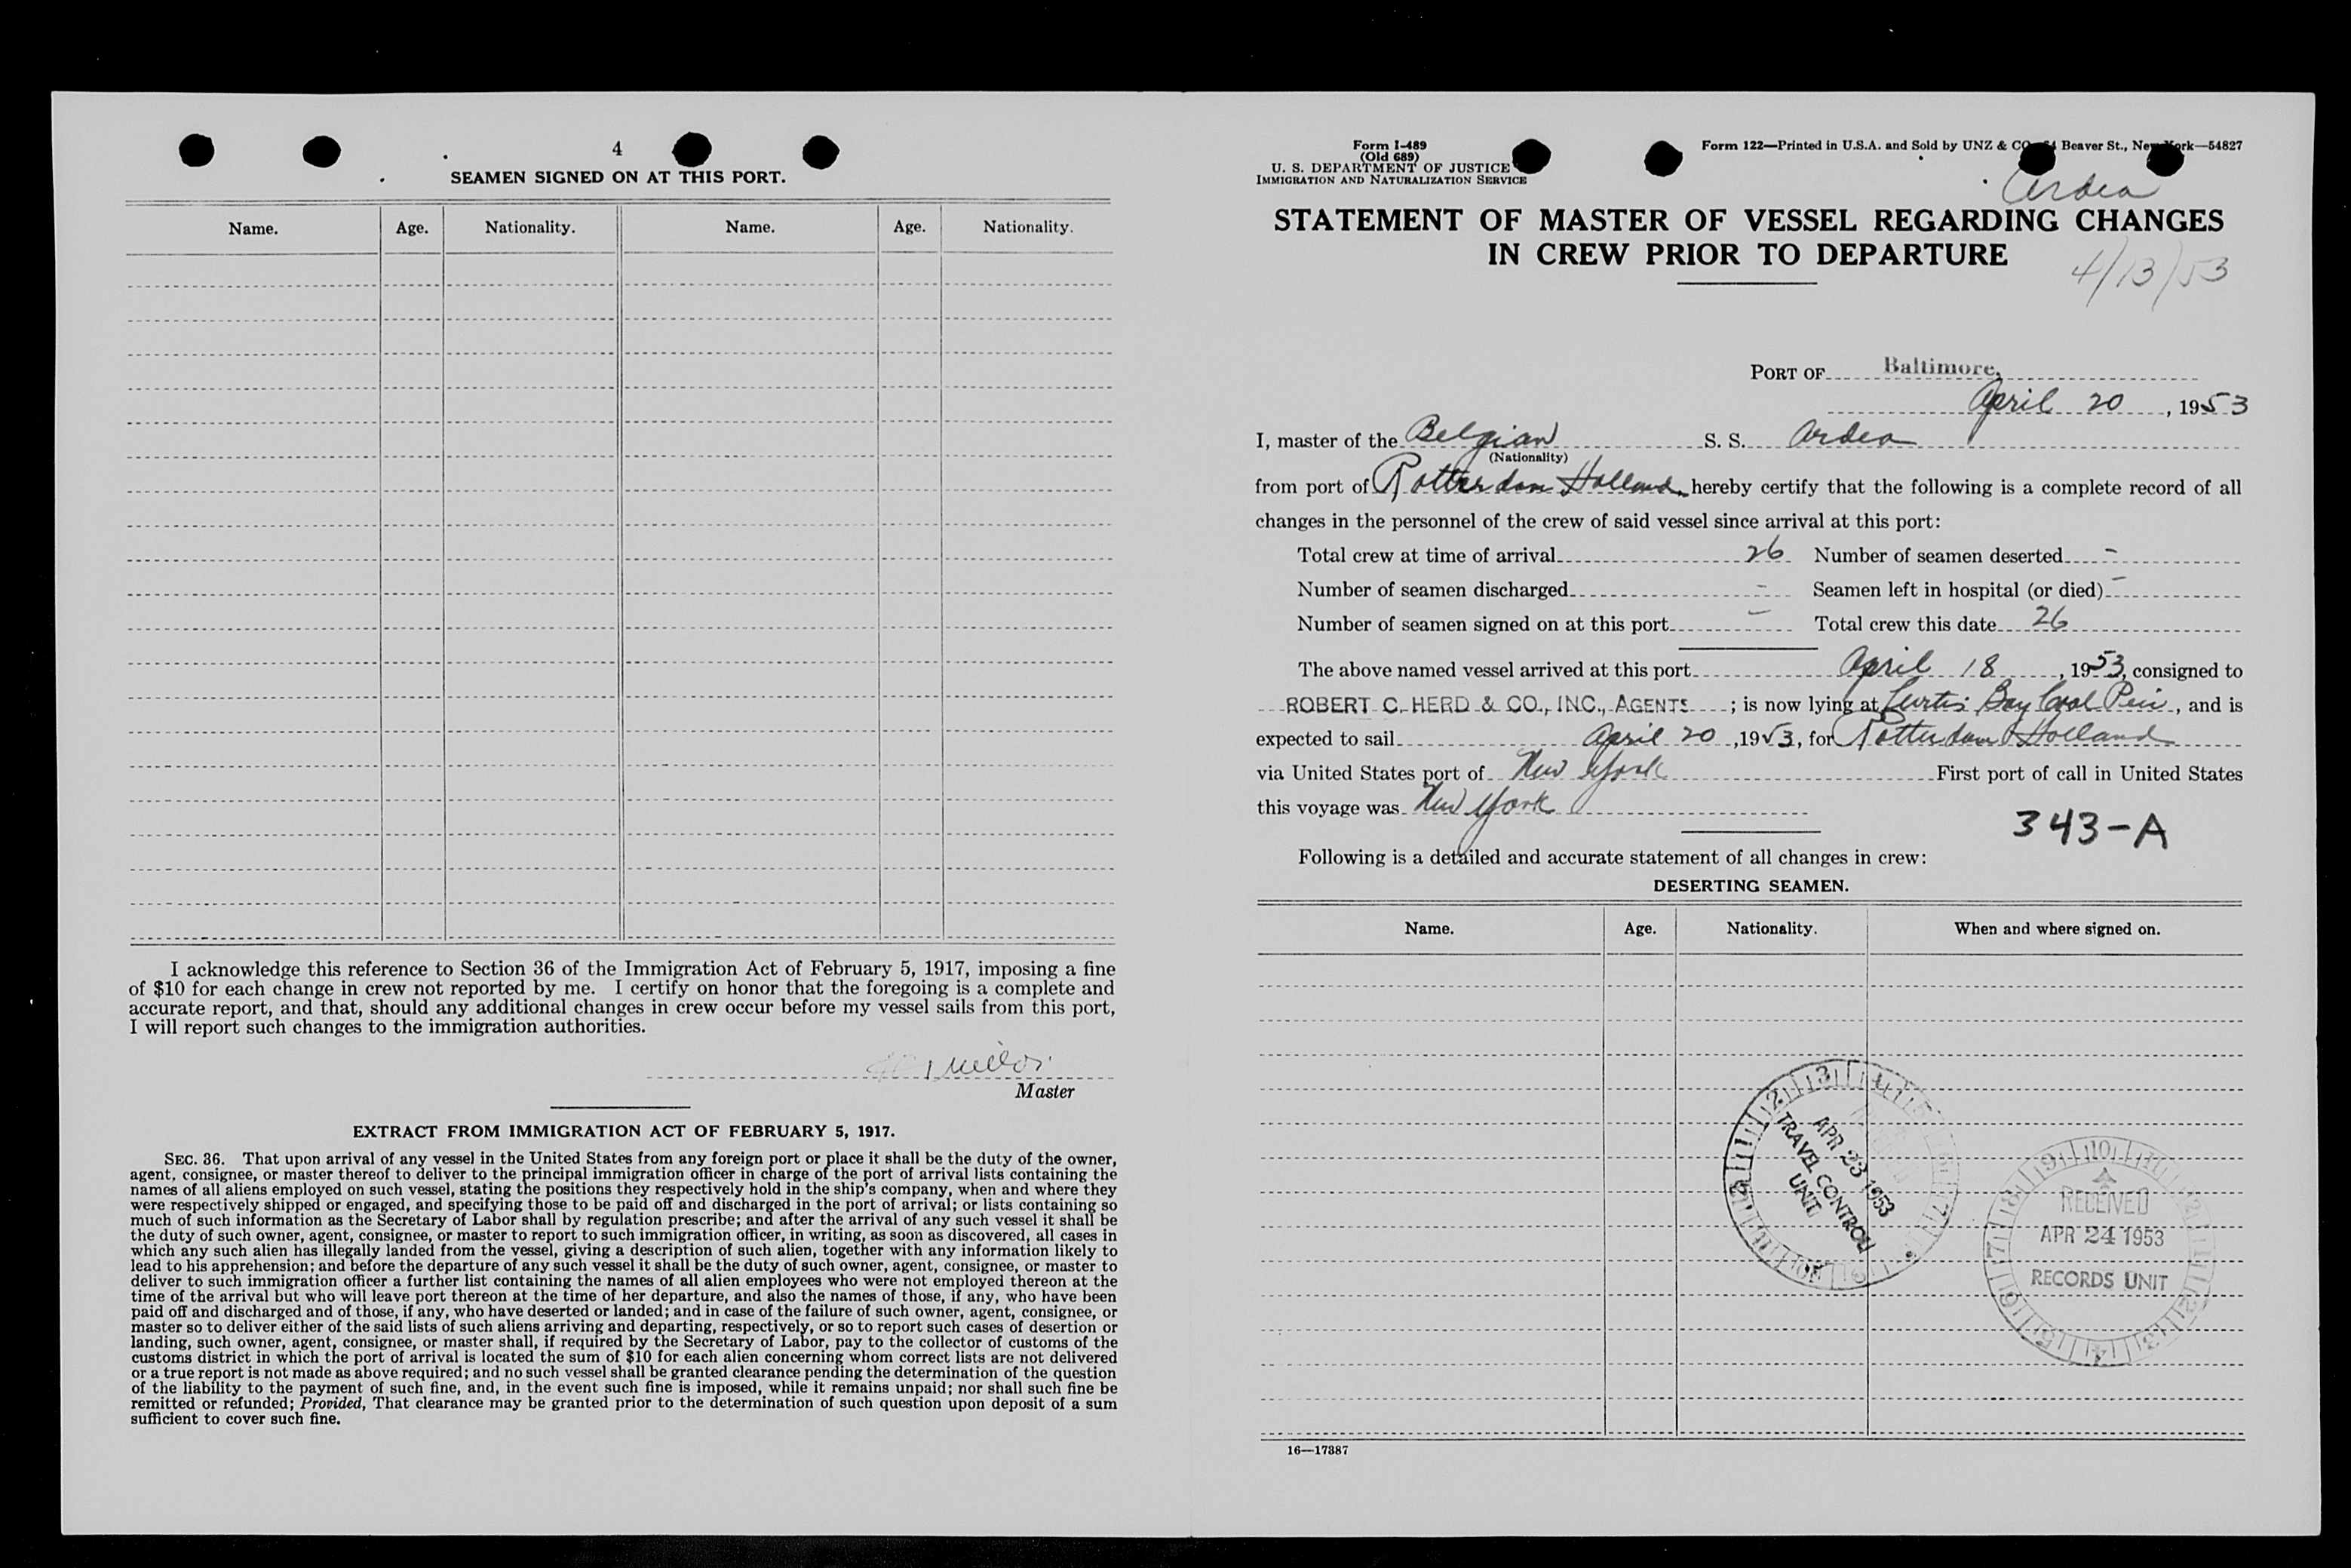 4
SEAMEN SIGNED ON AT THIS PORT.
Name. Age. Nationality. Name. Age. Nationality.
I acknowledge this reference to Section 36 of the Immigration Act of February 5, 1917, imposing a fine
of $10 for each change in crew not reported by me. I certify on honor that the foregoing is a complete and
accurate report, and that, should any additional changes in crew occur before my vessel sails from this port,
I will report such changes to the immigration authorities.
Master
EXTRACT FROM IMMIGRATION ACT OF FEBRUARY 5, 1917.
SEC. 36. That upon arrival of any vessel in the United States from any foreign port or place it shall be the duty of the owner,
agent, consignee, or master thereof to deliver to the principal immigration officer in charge of the port of arrival lists containing the
names of all aliens employed on such vessel, stating the positions they respectively hold in the ship's company, when and where they
were respectively shipped or engaged, and specifying those to be paid off and discharged in the port of arrival; or lists containing so
much of such information as the Secretary of Labor shall by regulation prescribe; and after the arrival of any such vessel it shall be
the duty of such owner, agent, consignee, or master to report to such immigration officer, in writing, as soon as discovered, all cases in
which any such alien has illegally landed from the vessel, giving a description of such alien, together with any information likely to
lead to his apprehension; and before the departure of any such vessel it shall be the duty of such owner, agent, consignee, or master to
deliver to such immigration officer a further list containing the names of all alien employees who were not employed thereon at the
time of the arrival but who will leave port thereon at the time of her departure, and also the names of those, if any, who have been
paid off and discharged and of those, if any, who have deserted or landed; and in case of the failure of such owner, agent, consignee, or
master so to deliver either of the said lists of such aliens arriving and departing, respectively, or so to report such cases of desertion or
landing, such owner, agent, consignee, or master shall, if required by the Secretary of Labor, pay to the collector of customs of the
customs district in which the port of arrival is located the sum of $10 for each alien concerning whom correct lists are not delivered
or a true report is not made as above required; and no such vessel shall be granted clearance pending the determination of the question
of the liability to the payment of such fine, and, in the event such fine is imposed, while it remains unpaid; nor shall such fine be
remitted or refunded; Provided, That clearance may be granted prior to the determination of such question upon deposit of a sum
sufficient to cover such fine.
Form I-489
(Old 689)
U. S. DEPARTMENT OF JUSTICE
IMMIGRATION AND NATURALIZATION SERVICE
Form 122—Printed in U.S.A. and Sold by UNZ & CO Beaver St., New York—54827
Ardea
STATEMENT OF MASTER OF VESSEL REGARDING CHANGES
IN CREW PRIOR TO DEPARTURE
4/13/53
PORT OF Baltimore,
April 20, 1953
I, master of the Belgian S. S. Ardea
(Nationality)
from port of Rotterdam Holland, hereby certify that the following is a complete record of all
changes in the personnel of the crew of said vessel since arrival at this port:
Total crew at time of arrival 26 Number of seamen deserted -
Number of seamen discharged - Seamen left in hospital (or died) -
Number of seamen signed on at this port - Total crew this date 26
The above named vessel arrived at this port April 18, 1953, consigned to
ROBERT C. HERD & CO., INC., AGENTS; is now lying at Curtis Bay Coal Pier, and is
expected to sail April 20, 1953, for Rotterdam Holland
via United States port of New York First port of call in United States
this voyage was New York
343-A
Following is a detailed and accurate statement of all changes in crew:
DESERTING SEAMEN.
Name. Age. Nationality. When and where signed on.
APR 23 1953
TRAVEL CONTROL
UNIT
RECEIVED
APR 24 1953
RECORDS UNIT
16—17387